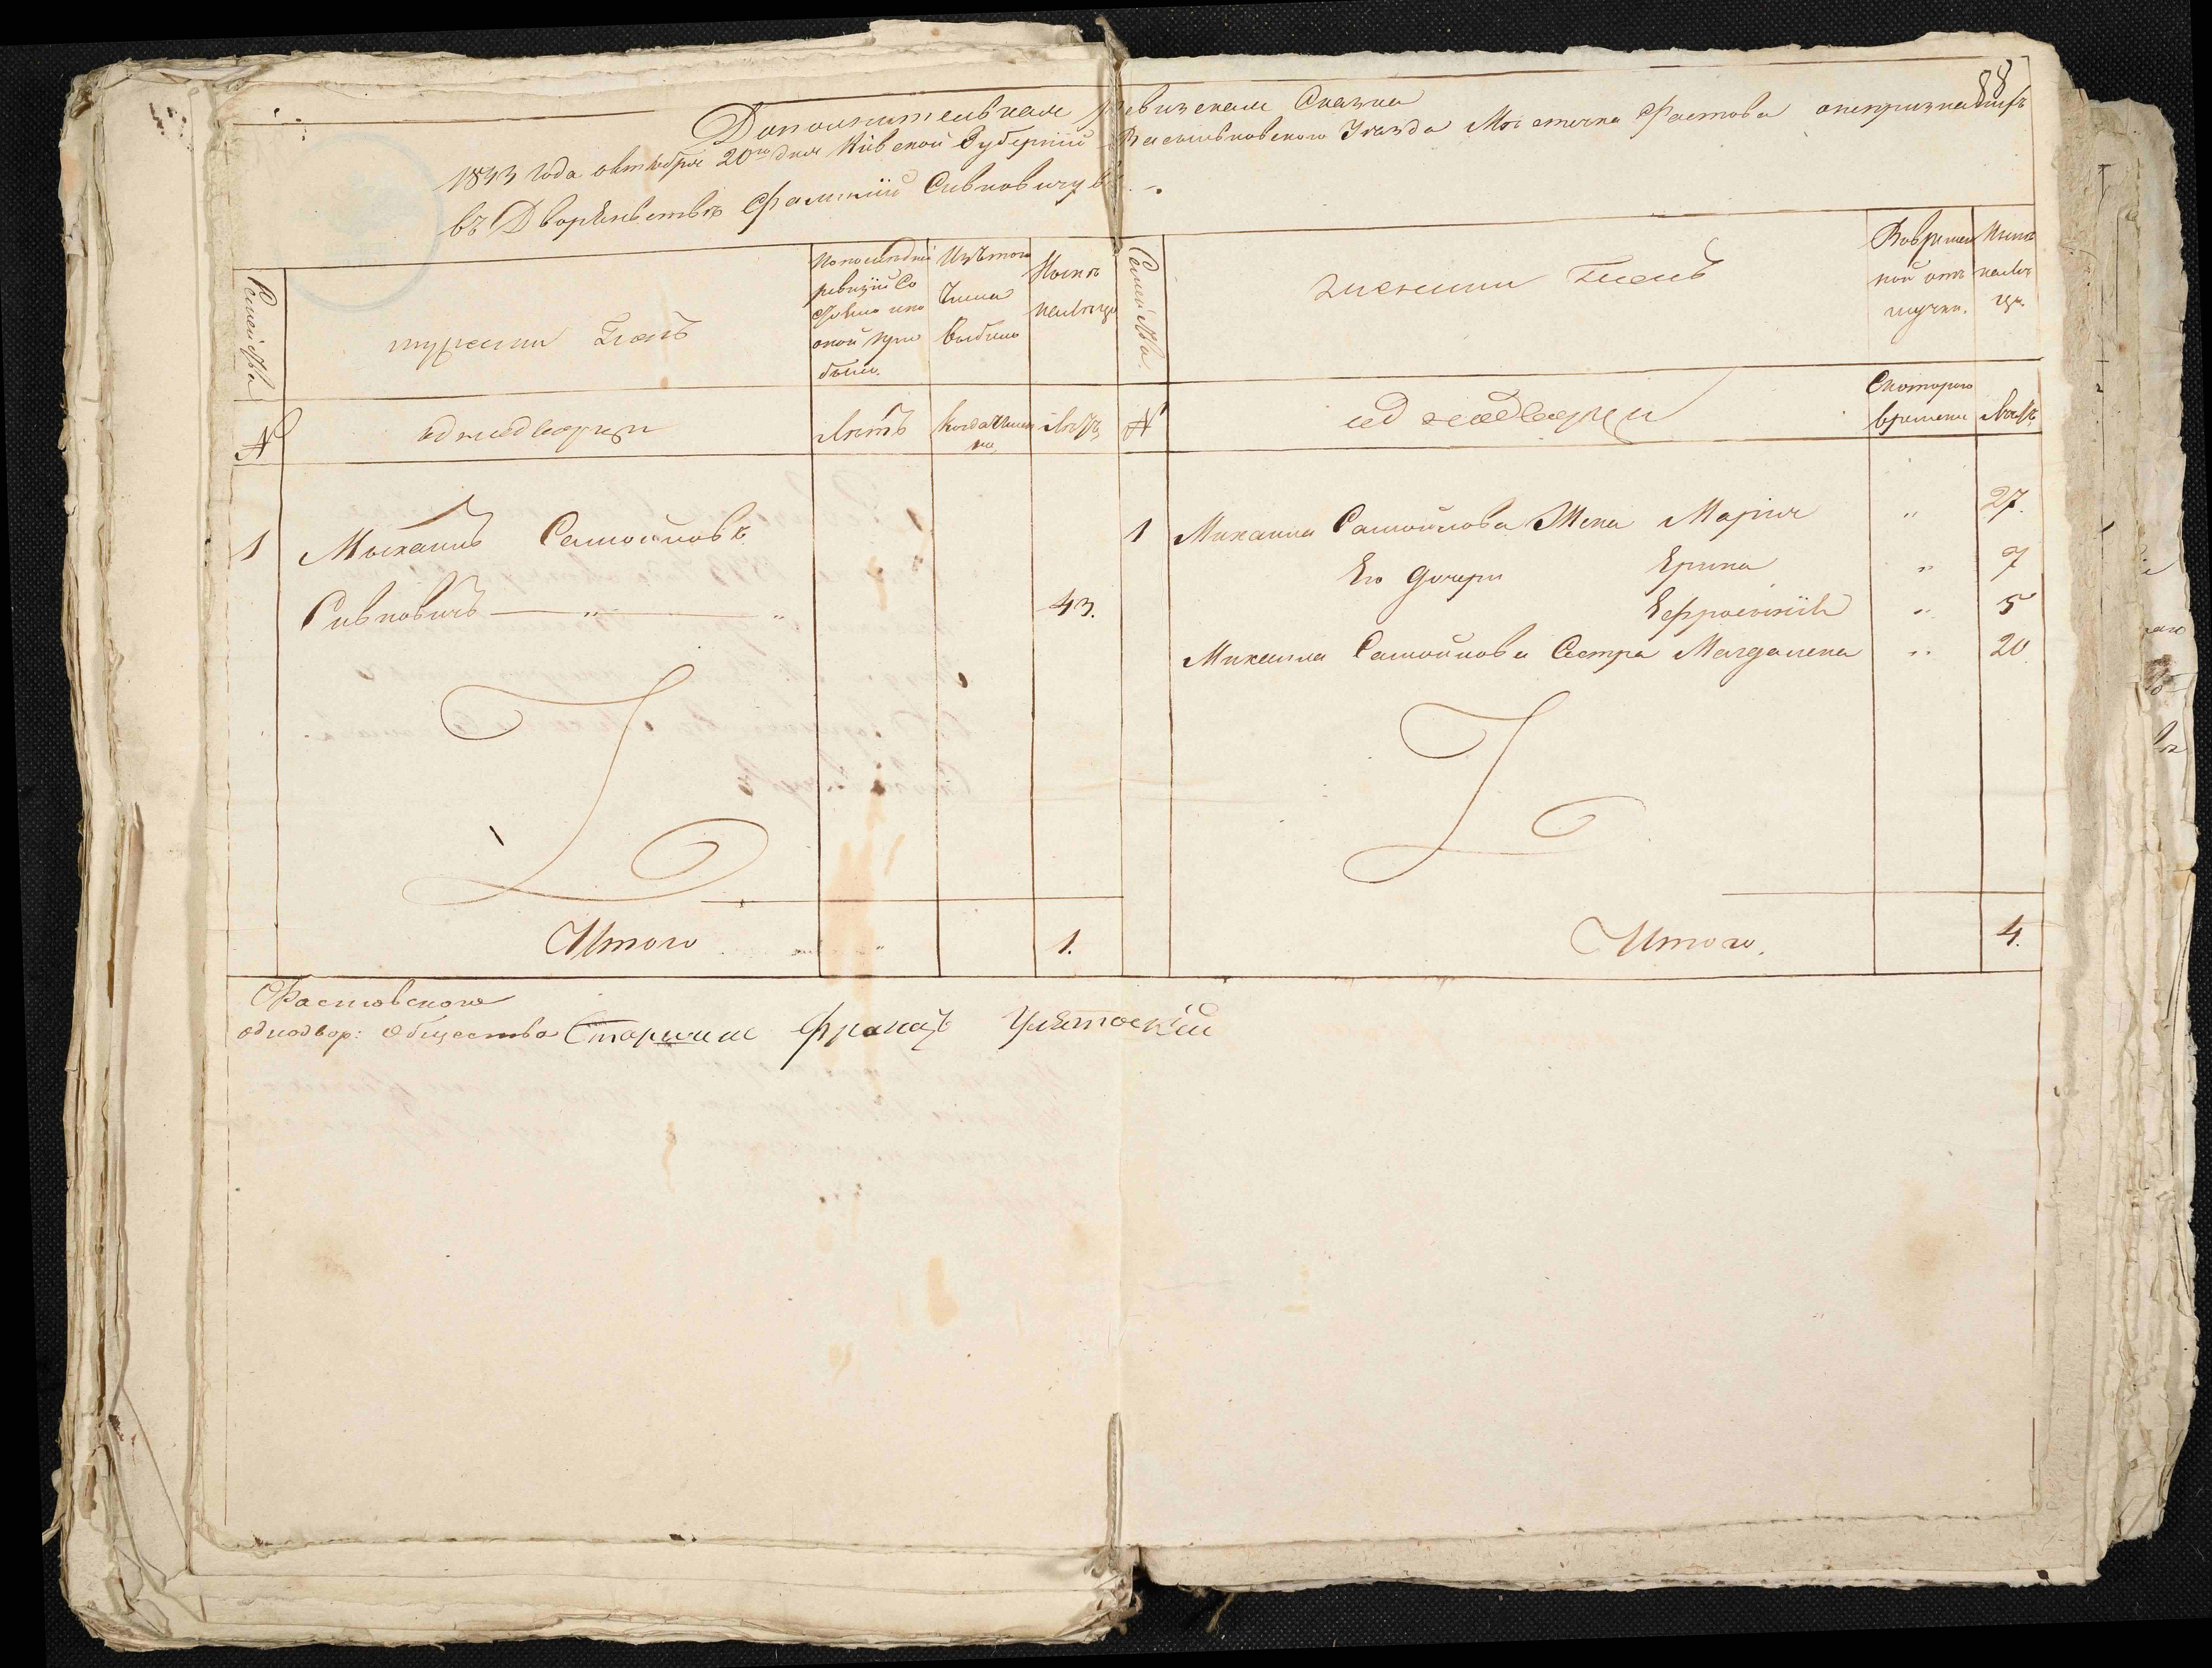 88
Дополнительная ревизская Сказка
1843 года октября 20го дня Киевской Губернии Васильковского Уезда Местечка Фастова
въ Дворянстве Фамилии Сивковичув.
Семейства
мужеский полъ
По последней ревизии Со
Изъ того Числа выбыло
Ныне налицо
Семейства.
женский полъ
Во временной отлучки.
Ныне налицо.
№
однодворци
Летъ
Когда именно
Летъ
№
однодворци
С которого времени
Летъ
1
Михаилъ Самойловъ
Сивковичъ — " — "
43.
1
Михаила Самойлова Жена Мария " 27.
Его дочери Ерина " 7
Ефросиния " 5
Михаила Самойлова Сестра Магдалена " 20
Итого
1.
Итого.
4.
Фастовского
однодвор: Общества Старшина Францъ